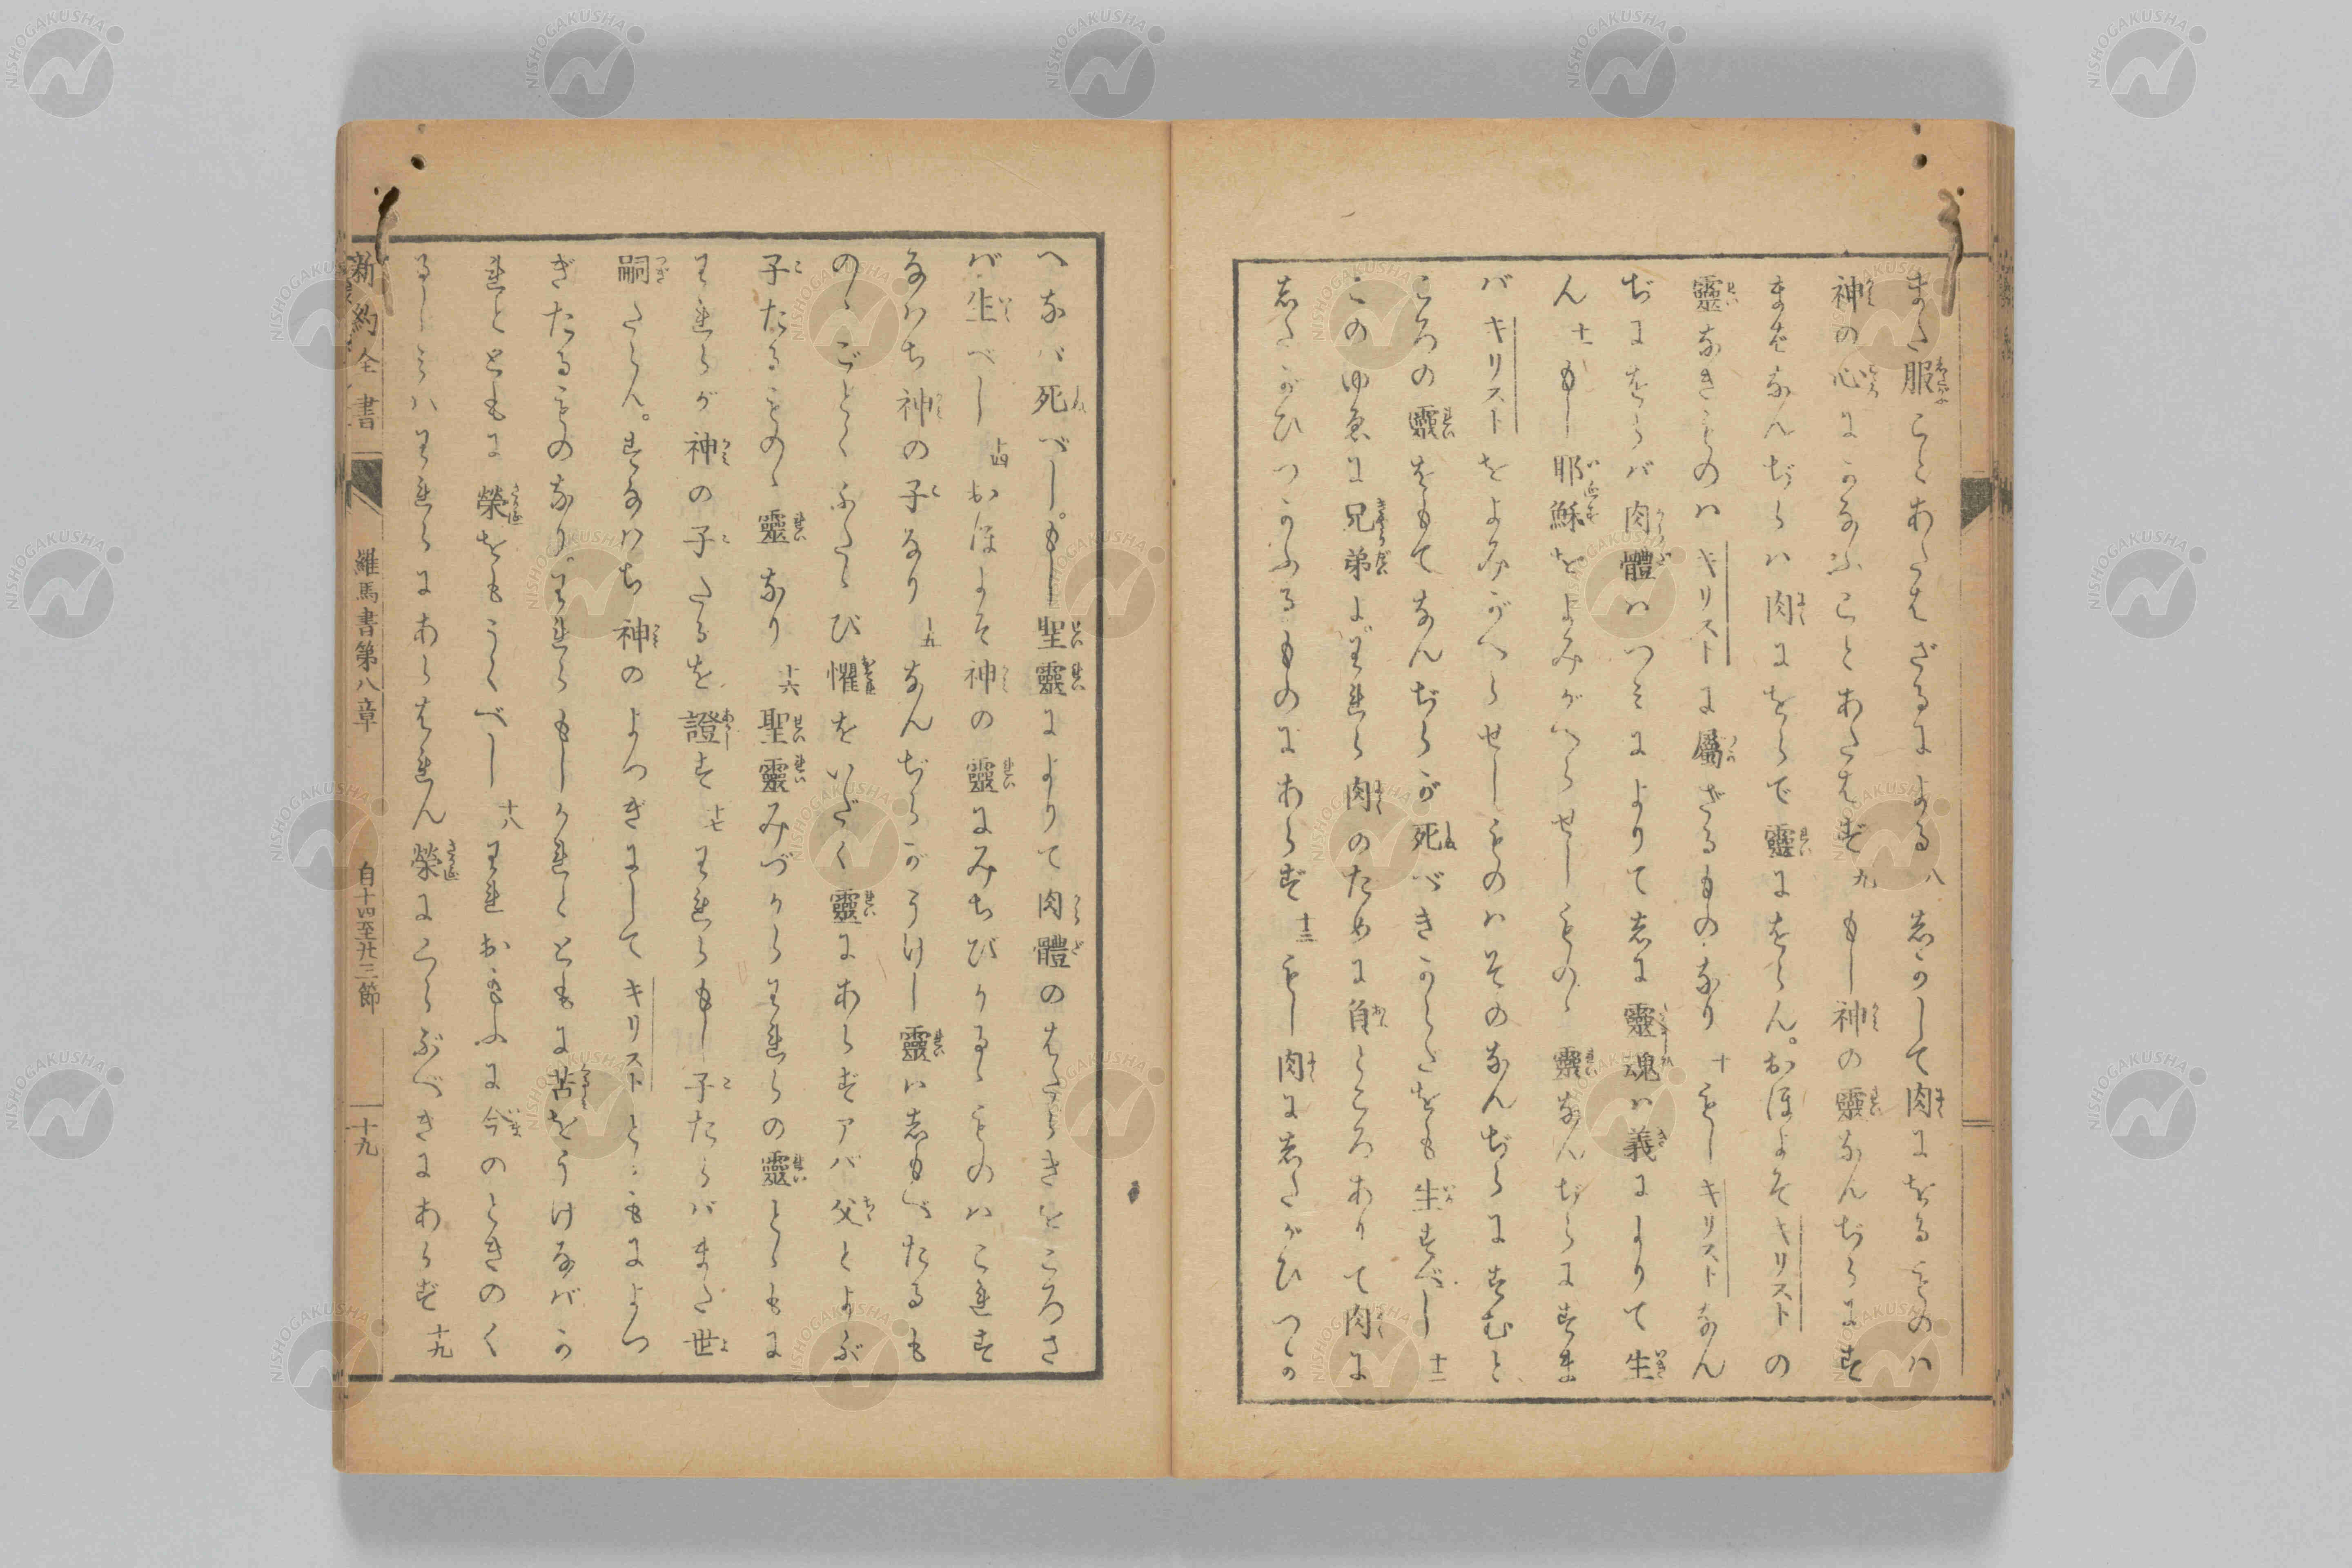 また服ことあたはざるによる八しかして肉にをるものハ
神の心にかなふことあたはず九もし神の靈なんぢらにす
まばなんぢらハ肉にをらで靈にをらん。おほよそキリストの
靈なきものハキリストに屬ざるもの.なり十もしキリストなん
ぢにをらバ肉體ハつミによりて志に靈魂ハ義によりて生
ん十一もし耶穌をよみがへらせしものゝ靈なんぢらにすま
バキリストをよみがへらせしものハそのなんぢらにすむと
ころの靈をもてなんぢらが死べきからだをも生すべし十二
このゆゑに兄弟よわれら肉のために負ところありて肉に
志たがひつかふるものにあらず十三もし肉に志たがひつか
へなバ死べし。もし聖靈によりて肉體のはたらきをころさ
バ生べし十四おほよそ神の靈にみちびかるゝものハこれす
なハち神の子なり十五なんぢらがうけし靈ハ志もべたるも
のゝごとくふたゝび懼をいだく靈にあらずアバ父とよぶ
子たるものゝ靈なり十六聖靈みづからわれらの靈とゝもに
われらが神の子たるを證す十七われらもし子たらバまた世
嗣たらん。すなハち神のよつぎにしてキリストとゝもによつ
ぎたるものなり。われらもしかれとともに苦をうけなバか
れとともに榮をもうくべし十八われおもふに今のときのく
るしミハわれらにあらはれん榮にくらぶべきにあらず十九
新約全書 羅馬書第八章 自十四至廿三節 十九